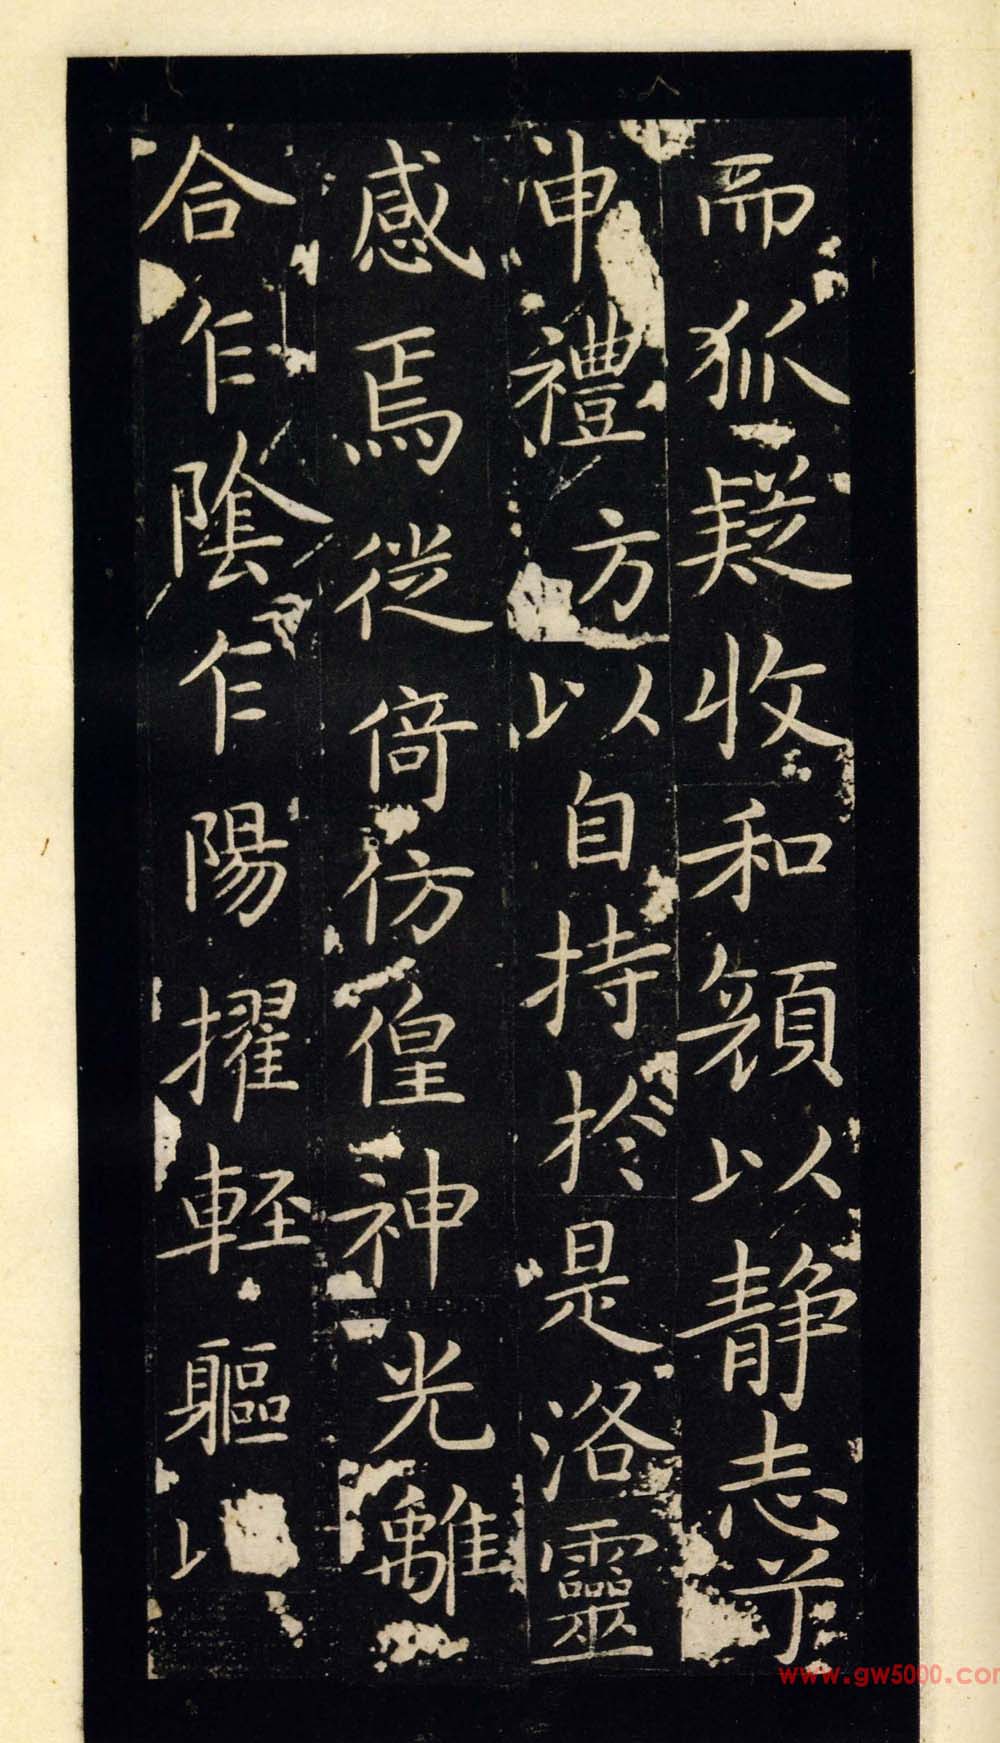 而狐疑收和顏以静志兮
申禮防以自持於是洛靈
感焉徙倚仿偟神光離
合乍陰乍陽擢輕軀以
www.gw5000.com